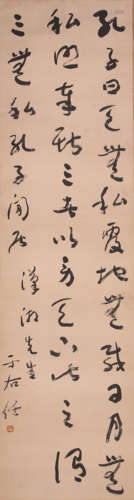 孔子曰天無私覆地無私載日月無
私照奉斯三者以勞天下此之謂
三無私孔子閒居
漢 先生
于右任